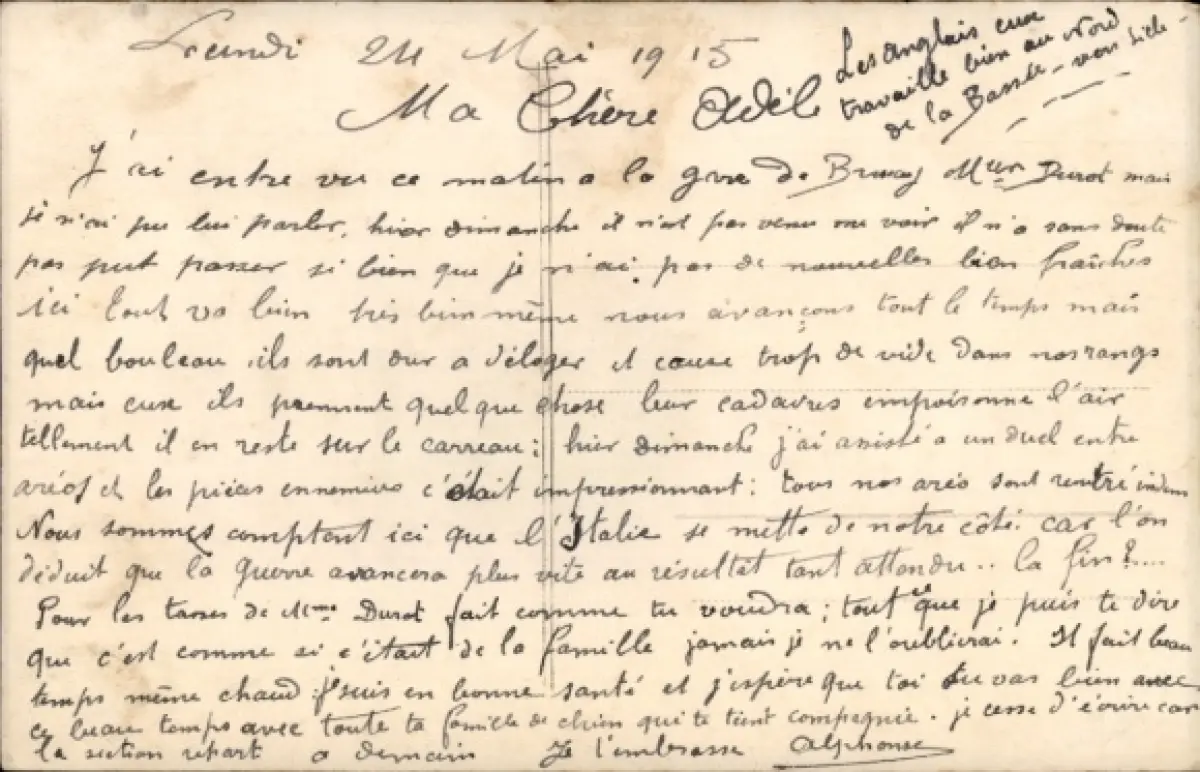 Lundi 24 Mai 1915
Les anglais eux
travaille bien au Nord
de la Bassée
Ma Chère Adèle
J'ai entre vu ce matin a la gare de Bruay Mur Durot mais
je n'ai pu lui parler, hier dimanche il n'est pas venu me voir il n'a sans doute
pas put passer si bien que je n'ai pas de nouvelles bien fraîches
ici tout va bien très bien même nous avançons tout le temps mais
quel bouleau ils sont dur a déloger et cause trop de vide dans nos rangs
mais eux ils prennent quelque chose leur cadavres empoisonne l'air
tellement il en reste sur le carreau : hier dimanche j'ai assisté a un duel entre
aréos et les pièces ennemives c'était impressionnant : tous nos aréo sont rentré indem
Nous sommes comptent ici que l'Italie se mette de notre côté car l'on
déduit que la guerre avancera plus vite au résultat tant attendu .. la fin ? ....
Pour les tasses de Mme Durot fait comme tu voudra ; tout ce que je puis te dire
que c'est comme si c'était de la famille jamais je ne l'oublirai. Il fait beau
temps même chaud : j'suis en bonne santé et j'espère que toi tu vas bien avec
ce beau temps avec toute ta famille de chien qui te tient compagnie. je cesse d'écrire car
la section répart a demain Je t'embrasse Alphonse